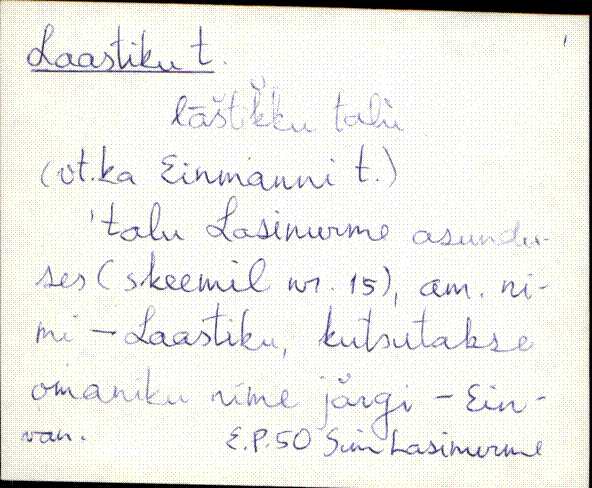 Laastiku t.
lāštikku talu
(vt.ka Einmanni t.)
'talu Lasinurme asundu-
ses (skeemil nr. 15), am. ni-
mi - Laastiku, kutsutakse
omaniku nime järgi - Ein-
E.P.50 Sim Lasinurme